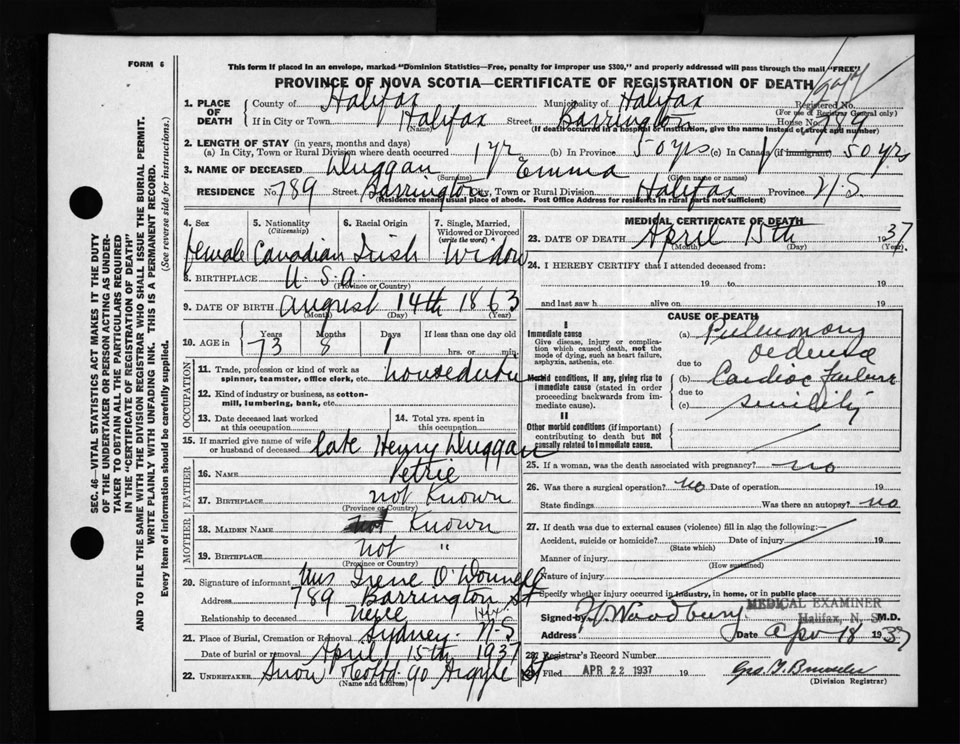 FORM 6
This form if placed in an envelope, marked "Dominion Statistics—Free, penalty for improper use $300," and properly addressed will pass through the mail "FREE"
PROVINCE OF NOVA SCOTIA—CERTIFICATE OF REGISTRATION OF DEATH
SEC. 46—VITAL STATISTICS ACT MAKES IT THE DUTY
OF THE UNDERTAKER OR PERSON ACTING AS UNDER-
TAKER TO OBTAIN ALL THE PARTICULARS REQUIRED
IN THE "CERTIFICATE OF REGISTRATION OF DEATH"
AND TO FILE THE SAME WITH THE DIVISION REGISTRAR WHO SHALL ISSUE THE BURIAL PERMIT.
WRITE PLAINLY WITH UNFADING INK. THIS IS A PERMANENT RECORD.
Every item of information should be carefully supplied. (See reverse side for instructions.)
1. PLACE OF DEATH County of Halifax Municipality of Halifax Registered No.
(For use of Registrar General only)
If in City or Town Halifax Street Barrington House No. 789
(Name) (If death occurred in a hospital or institution, give the name instead of street and number)
2. LENGTH OF STAY (in years, months and days)
(a) In City, Town or Rural Division where death occurred 1 yr (b) In Province 50 yrs (c) In Canada (if immigrant) 50 yrs
3. NAME OF DECEASED Duggan Emma
(Surname) (Given name or names)
RESIDENCE No. 789 Street Barrington City, Town or Rural Division Halifax Province N.S
(Residence means usual place of abode. Post Office Address for residents in rural parts not sufficient)
4. Sex 5. Nationality 6. Racial Origin 7. Single, Married, Widowed or Divorced
(Citizenship) (write the word)
female Canadian Irish Widow
8. BIRTHPLACE U.S.A.
(Province or Country)
9. DATE OF BIRTH August 14th 1863
(Month) (Day) (Year)
10. AGE in Years Months Days If less than one day old
73 8 1 hrs. or min.
OCCUPATION
11. Trade, profession or kind of work as spinner, teamster, office clerk, etc. houseduties
12. Kind of industry or business, as cotton-mill, lumbering, bank, etc.
13. Date deceased last worked at this occupation 14. Total yrs. spent in this occupation
15. If married give name of wife or husband of deceased late Henry Duggan
FATHER
16. Name Petrie
17. Birthplace not Known
(Province or Country)
MOTHER
18. Maiden Name not Known
19. Birthplace not "
(Province or Country)
20. Signature of informant Mrs Irene O'Donnell
Address 789 Barrington St
Relationship to deceased niece
21. Place of Burial, Cremation or Removal Sydney. N-S
Date of burial or removal April 15th 1937
22. UNDERTAKER Snow & Co Ltd 90 Argyle St
(Name and address)
MEDICAL CERTIFICATE OF DEATH
23. DATE OF DEATH April 15th 1937.
(Month) (Day) (Year)
24. I HEREBY CERTIFY that I attended deceased from:
19 to 19
and last saw h alive on 19
CAUSE OF DEATH
I
Immediate cause (a) Pulmonary oedema
Give disease, injury or complication which caused death, not the mode of dying, such as heart failure, asphyxia, asthenia, etc.
due to
Morbid conditions, if any, giving rise to immediate cause (stated in order proceeding backwards from immediate cause). (b) Cardiac Failure
due to
(c) senility
II
Other morbid conditions (if important) contributing to death but not causally related to immediate cause.
25. If a woman, was the death associated with pregnancy? no
26. Was there a surgical operation? no Date of operation 19
State findings Was there an autopsy? no
27. If death was due to external causes (violence) fill in also the following:
Accident, suicide or homicide? Date of injury 19
(State which)
Manner of injury
(How sustained)
Nature of injury
Specify whether injury occurred in industry, in home, or in public place
MEDICAL EXAMINER
Halifax, N. S.
Signed by Woodbury M.D.
Address Date Apr 18 1937
28. Registrar's Record Number
Filed APR 22 1937 19
(Division Registrar)